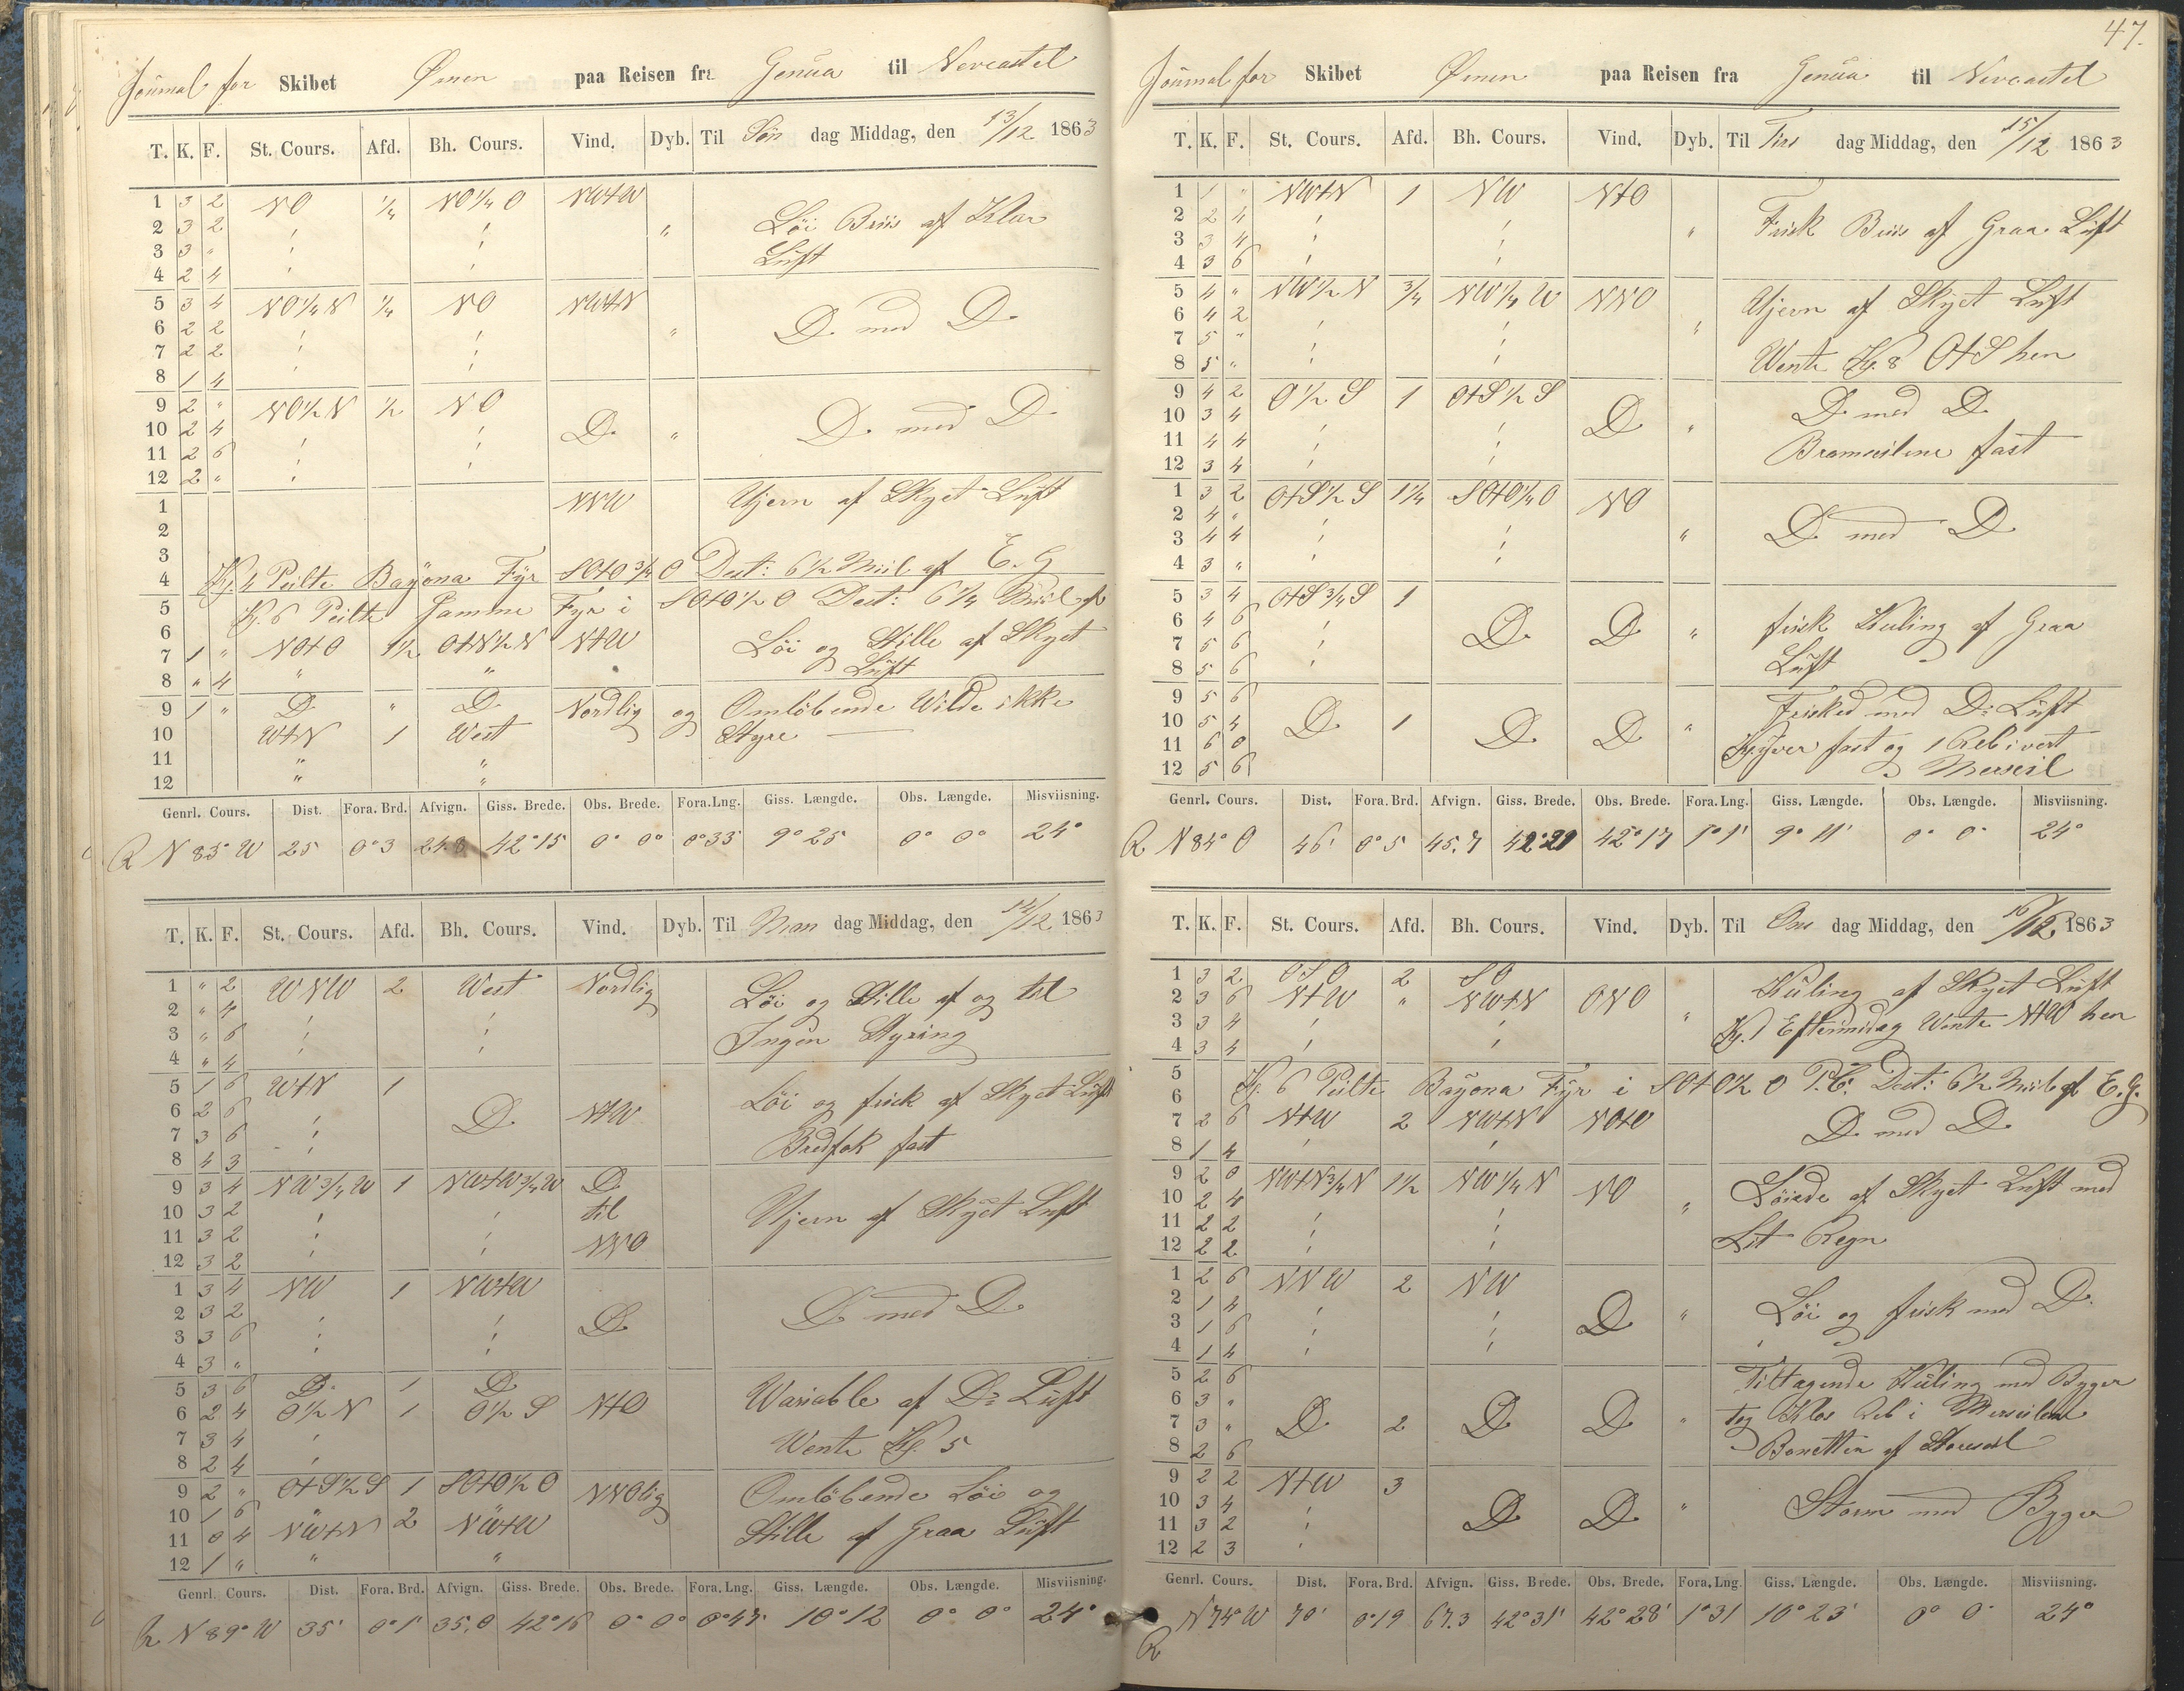 Journal for Skibet Ørnen paa Reisen fra Genua til Newcastel
T. K. F. St. Cours. Afd. Bh. Cours. Vind. Dyb. Til Søn dag Middag, den 13/12 1863
1 3 2 NO 1/4 NO 1/4 O NWtW
2 3 2 " Løi Briis af Klar
3 3 " Luft
4 2 4
5 3 4 NO 1/4 N 1/4 NO NWtN
6 2 2 " D. med D.
7 2 2
8 1 4
9 2 " NO 1/2 N 1/2 NO
10 2 4 D. " D. med D
11 2 6
12 2 "
1 NNW Ujevn af Skyet Luft
2
3
4 Kl. 4 Peilte Bayona Fyr SOtO 3/4 O Dist: 6 1/2 Miil af E.G
5 Kl. 6 Peilte Fyr i SOtO 1/2 O Dist: 6 1/4 Miil af
6
7 1 " NOtO 1 1/2 OtN 1/2 N NtW Løi og Stille af Skyet
8 " 4 " " Luft
9 1 " D. " D. Nordlig og Omløbende Wilde ikke
10 WtN 1 West Styre
11 " "
12 " "
Genrl. Cours. Dist. Fora. Brd. Afvign. Giss. Brede. Obs. Brede. Fora. Lng. Giss. Længde. Obs. Længde. Misviisning.
R N 85° W 25 0° 3 24.8 42° 15 0° 0° 0° 33 9° 25 0° 0° 24°
T. K. F. St. Cours. Afd. Bh. Cours. Vind. Dyb. Til Man dag Middag, den 14/12 1863
1 " 2 WNW 2 West Nordlig
2 " 4 Løi og Stille af og til
3 " 6 Ingen Styring
4 " 4
5 1 6 WtN 1
6 2 6 D. NtW Løi og frisk af Skyet Luft
7 3 6 Bredfok fast
8 4 3
9 3 4 NW 3/4 W 1 NWtW 3/4 W D.
10 3 2 til Ujevn af Skyet Luft
11 3 2 NNO
12 3 2
1 3 4 NW 1 NWtW
2 3 2 D. D. med D.
3 3 6
4 3 "
5 3 6 D. 1 D.
6 2 4 O 1/2 N 1 O 1/2 S NtO Wariable af Do Luft
7 3 4 Wente Kl. 5
8 2 4
9 2 " OtS 1/2 S 1 SOtO 1/2 O NNOlig Omløbende Løi og
10 1 6
11 0 4 NWtN 2 NWtW Stille af Graa Luft
12 1 " " "
Genrl. Cours. Dist. Fora. Brd. Afvign. Giss. Brede. Obs. Brede. Fora. Lng. Giss. Længde. Obs. Længde. Misviisning.
R N 89° W 35' 0° 1' 35.0 42° 16 0° 0° 0° 47' 10° 12 0° 0° 24°
47.
Journal for Skibet Ørnen paa Reisen fra Genua til Newcastel
T. K. F. St. Cours. Afd. Bh. Cours. Vind. Dyb. Til Tirs dag Middag, den 15/12 1863
1 1 " NWtN 1 NW NtO
2 2 4 " Frisk Briis af Graa Luft
3 3 4
4 3 6
5 4 " NW 1/2 N 3/4 NW 1/4 W NNO Ujevn af Skyet Luft
6 4 2
7 5 " "
8 5 " Wente Kl. 8 OtS hen
9 4 2 O 1/2 S 1 OtS 1/2 S D. med D.
10 3 4 D. "
11 4 4 Bramseilene fast
12 3 4
1 3 2 OtS 1/2 S 1 1/4 SOtO 1/4 O NO
2 4 " D. med D
3 4 4 "
4 3 "
5 3 4 OtS 3/4 S 1
6 4 6 D. D. " frisk Kuling af Graa
7 5 6 Luft
8 5 6
9 5 6 Frisked med Do Luft
10 5 4 D. 1 D. D. "
11 6 0 Klyver fast og 1 Reb i vert
12 5 6 Merseil
Genrl. Cours. Dist. Fora. Brd. Afvign. Giss. Brede. Obs. Brede. Fora. Lng. Giss. Længde. Obs. Længde. Misviisning.
R N 84° O 46' 0° 5 45.7 42° 21 42° 17 1° 1' 9° 11' 0° 0° 24°
T. K. F. St. Cours. Afd. Bh. Cours. Vind. Dyb. Til Ons dag Middag, den 16/12 1863
1 3 2 OSO 2 SO Kuling af Skyet Luft
2 3 6 NtW " NWtN ONO
3 3 4 " Kl. 1 Eftermidag Wente NtW hen
4 3 4
5
6 Kl. 6 Peilte Bayona Fyr i SOtO 1/2 O P.C. Dist: 6 1/2 Miil af E.G.
7 2 6 NtW 2 NWtN NOtO D. med D.
8 1 4
9 2 0 NWtN 3/4 N 1 1/2 NW 1/4 N NO Løiede af Skyet Luft med
10 2 4 "
11 2 2 Lit Regn
12 2 2
1 2 6 NNW 2 NW
2 1 4 D. " Løi og frisk med D.
3 1 6
4 1 4
5 2 6 Tiltagende Kuling med Byger
6 3 " D. 2 D. D. " tog Klos Reb i Merseilene
7 3 "
8 2 6 Bonetten af Storseil
9 2 2 NtW 3
10 3 4 D. D. " Storm med Byger
11 3 2
12 2 3
Genrl. Cours. Dist. Fora. Brd. Afvign. Giss. Brede. Obs. Brede. Fora. Lng. Giss. Længde. Obs. Længde. Misviisning.
R N 74° W 70' 0° 19 67.3 42° 31' 42° 28' 1° 31 10° 23' 0° 0° 24°